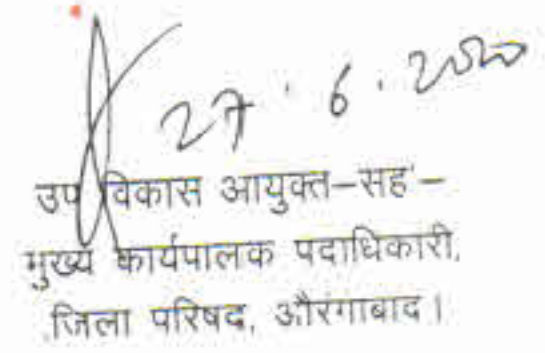 27.6.2020
उप विकास आयुक्त-सह-
मुख्य कार्यपालक पदाधिकारी,
जिला परिषद, औरंगाबाद।